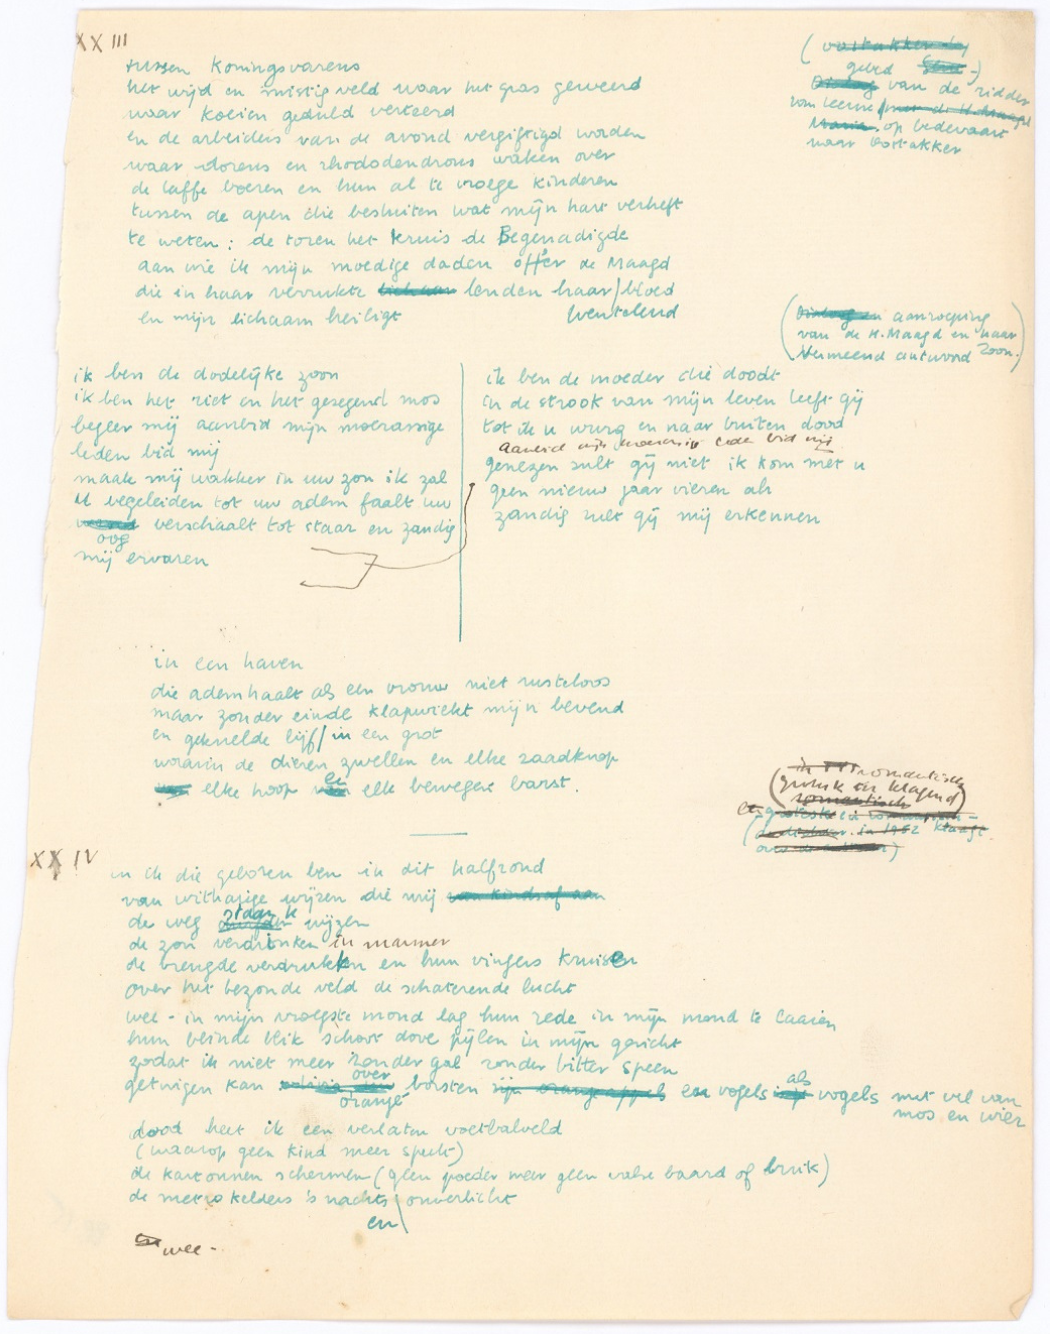 XXIII
tussen koningsvarens
het wijd en mistig veld waar het gras geweerd
waar koeien geduld verteerd
en de arbeiders van de avond vergiftigd worden
waar dorens en rhododendrons waken over
de laffe boeren en hun al te vroege kinderen
tussen de apen die besluiten wat mijn hart verheft
te weten: de toren het kruis de Begenadigde
aan wie ik mijn moedige daden offer de Maagd
die in haar verrukte lenden haar/bloed
wentelend
en mijn lichaam heiligt
(oostakker
gebed -)
van de ridder
van Leerne
Maria op bedevaart
naar Oostakker
(Dialoog en aanroeping
van de H. Maagd en haar
Vermeend antwoord Zoon.)
ik ben de dodelijke zoon
ik ben het riet en het gezegend mos
begeer mij aanbid mijn moerassige
leden bid mij
maak mij wakker in uw zon ik zal
U begeleiden tot uw adem faalt uw
oog verschaalt tot staar en zandig
mij ervaren
ik ben de moeder die doodt
in de strook van mijn leven leeft gij
tot ik u wurg en naar buiten dood
bid mij
genezen zult gij niet ik kom met u
geen nieuw jaar vieren als
zandig zult gij mij erkennen
in een haven
die ademhaalt als een vrouw niet rusteloos
maar zonder einde klapwiekt mijn bevend
en geknelde lijf/in een grot
waarin de dieren zwellen en elke zaadknop
elke hoop elk bewegen barst.
romantische
(gruwelijk en klagend)
romantisch
XXIV
en ik die geboren ben in dit halfrond
van witharige wijzen die mij van kindsaf aan
de weg straank wijzen
de zon verdrinken in marmer
de vreugde verdrukken en hun vingers kruisen
over het bezonde veld de schaterende lucht
wee - in mijn vroegste mond lag hun rede in mijn mond te laaien
hun blinde blik schoot dove pijlen in mijn gezicht
zodat ik niet meer zonder gal zonder bitter speen
getuigen kan over oranje borsten en vogels als vogels met vel van
mos en wier
dood heet ik een verlaten voetbalveld
(waarop geen kind meer speelt)
de kartonnen schermen (geen poeder meer geen valse baard of bruik)
de metrokelders 's nachts en onverlicht
wee -